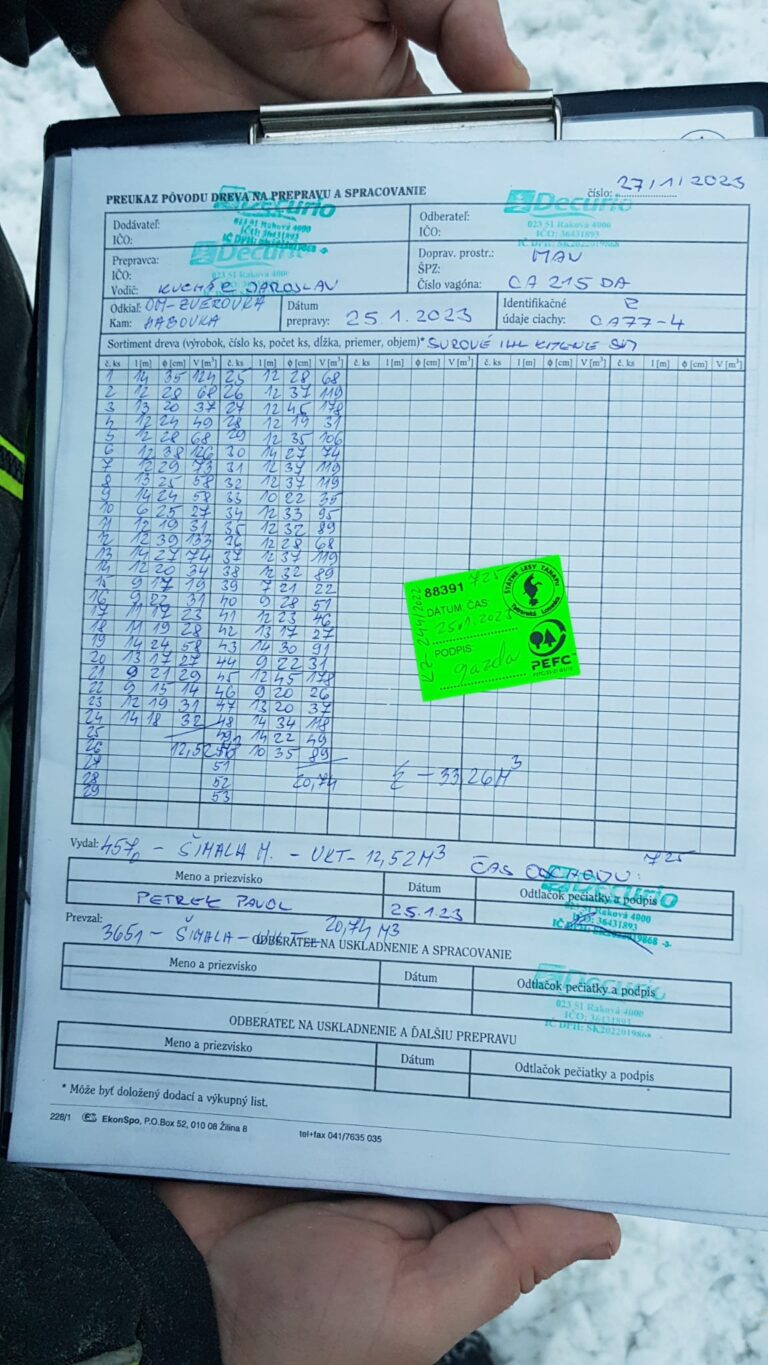 PREUKAZ PÔVODU DREVA NA PREPRAVU A SPRACOVANIE
číslo: 27/1/2023
Dodávateľ:
IČO:
Decurio
023 51 Raková 4000
IČO: 36431893
IČ DPH: SK2022019868
Odberateľ:
IČO:
Decurio
023 51 Raková 4000
IČO: 36431893
IČ DPH: SK2022019868
Prepravca:
IČO:
Decurio
023 51 Raková 4000
Vodič: KUCHÁR JAROSLAV
Doprav. prostr.: MAN
ŠPZ:
Číslo vagóna: CA 215 DA
Odkiaľ: OM-ZVEROVKA
Kam: HABOVKA
Dátum
prepravy: 25.1.2023
Identifikačné
údaje ciachy: CA77-4
Sortiment dreva (výrobok, číslo ks, počet ks, dĺžka, priemer, objem)* SUROVÉ IHL
č. ks l [m] ϕ [cm] V [m³] č. ks l [m] ϕ [cm] V [m³] č. ks l [m] ϕ [cm] V [m³] č. ks l [m] ϕ [cm] V [m³] č. ks l [m] ϕ [cm] V [m³]
1 14 35 124 25 12 28 68
2 12 28 68 26 12 37 119
3 13 20 37 27 12 45 178
4 12 24 49 28 12 19 31
5 12 28 68 29 12 35 106
6 12 38 126 30 14 27 74
7 12 29 73 31 12 37 119
8 13 25 58 32 12 37 119
9 14 24 58 33 10 22 35
10 6 25 27 34 12 33 95
11 12 19 31 35 12 32 89
12 12 39 133 36 12 28 68
13 14 27 74 37 12 37 119
14 12 20 34 38 12 32 89
15 9 17 19 39 7 21 22
16 9 22 31 40 9 28 51
17 11 19 23 41 12 23 46
18 11 19 28 42 13 17 27
19 14 24 58 43 14 30 91
20 13 17 27 44 9 22 31
21 9 21 29 45 12 45 178
22 9 15 14 46 9 20 26
23 12 19 31 47 13 20 37
24 14 18 32 48 14 34 118
25 49 14 22 49
26 12,52 10 35 89
27 51
28 52 20,74 Σ - 33,26M³
29 53
88391 725
DÁTUM ČAS
25.1.2023
PODPIS
gazda
ŠTÁTNE LESY TANAPU
Tatranská Lomnica
PEFC
Vydal: 457 - ŠIMALA M. - UKT - 12,52M³ ČAS ODCHODU: 725
Meno a priezvisko Dátum Odtlačok pečiatky a podpis
PETREK PAVOL 25.1.23
Decurio
023 51 Raková 4000
IČO: 36431893
IČ DPH: SK2022019868
Prevzal: 3651 - ŠIMALA - 20,74 M3
ODBERATEĽ NA USKLADNENIE A SPRACOVANIE
Meno a priezvisko Dátum Odtlačok pečiatky a podpis
Decurio
023 51 Raková 4000
IČO: 36431893
IČ DPH: SK2022019868
ODBERATEĽ NA USKLADNENIE A ĎALŠIU PREPRAVU
Meno a priezvisko Dátum Odtlačok pečiatky a podpis
* Môže byť doložený dodací a výkupný list.
228/1 EkonSpo, P.O.Box 52, 010 08 Žilina 8 tel+fax 041/7635 035